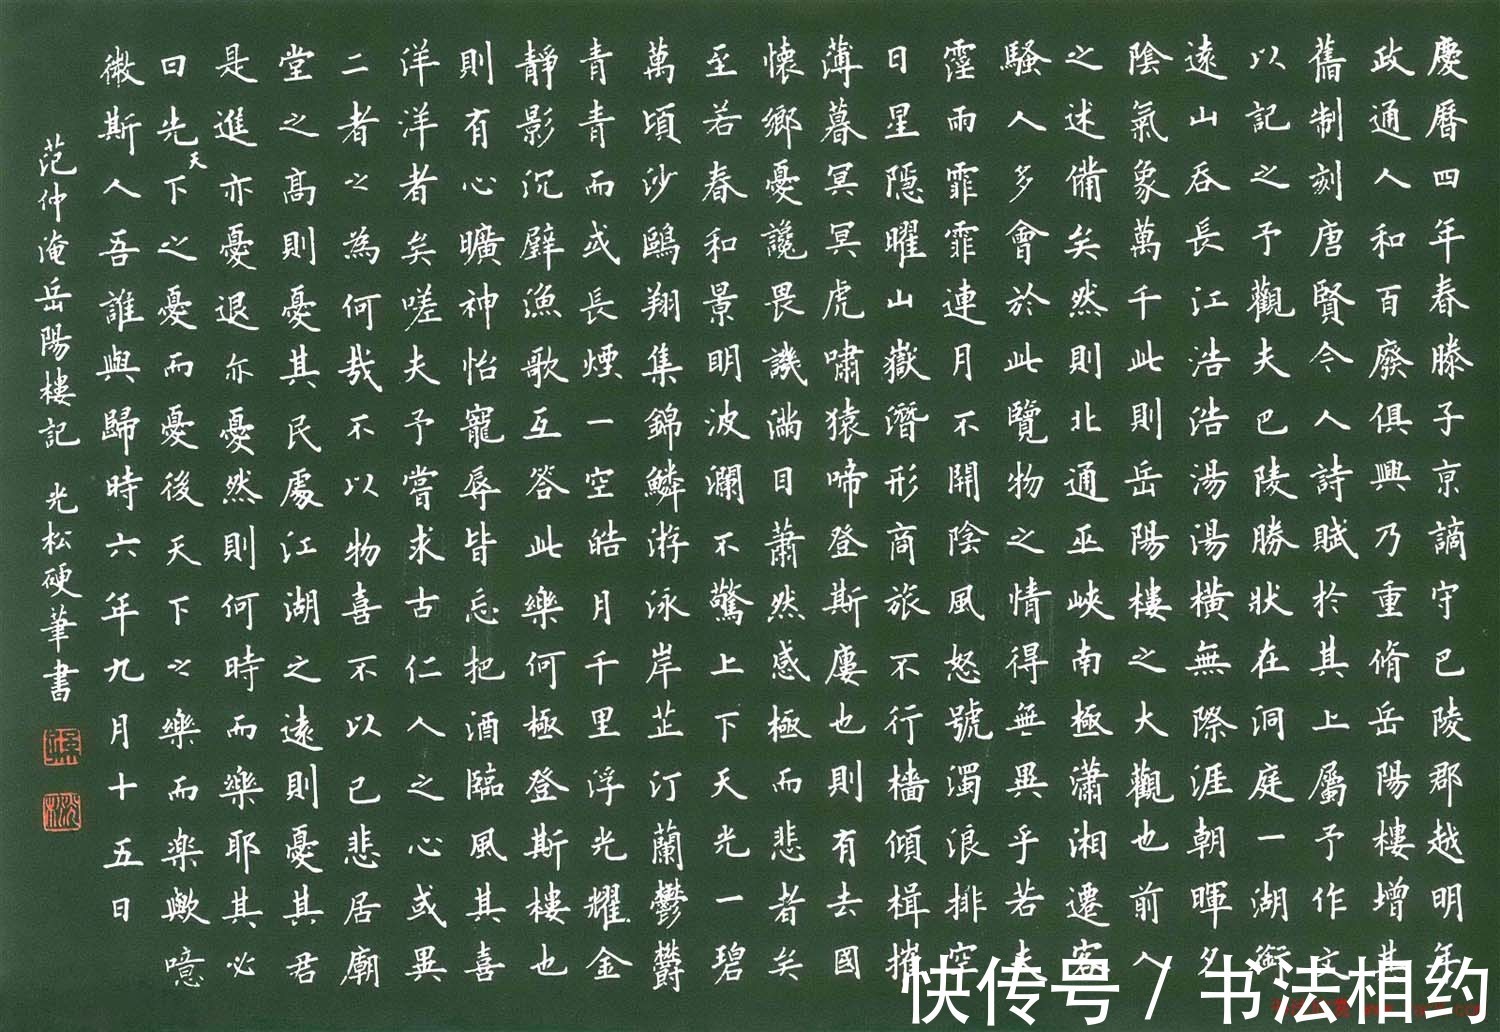 慶曆四年春滕子京謫守巴陵郡越明年
政通人和百廢俱興乃重脩岳陽樓增其
舊制刻唐賢今人詩賦於其上屬予作文
以記之予觀夫巴陵勝狀在洞庭一湖銜
遠山吞長江浩浩湯湯橫無際涯朝暉夕
陰氣象萬千此則岳陽樓之大觀也前人
之述備矣然則北通巫峽南極瀟湘遷客
騷人多會於此覽物之情得無異乎若夫
霪雨霏霏連月不開陰風怒號濁浪排空
日星隱曜山嶽潛形商旅不行檣傾楫摧
薄暮冥冥虎嘯猿啼登斯廔也則有去國
懷鄉憂讒畏譏滿目蕭然感極而悲者矣
至若春和景明波瀾不驚上下天光一碧
萬頃沙鷗翔集錦鱗游泳岸芷汀蘭鬱鬱
青青而或長煙一空皓月千里浮光耀金
靜影沉璧漁歌互答此樂何極登斯樓也
則有心曠神怡寵辱皆忘把酒臨風其喜
洋洋者矣嗟夫予嘗求古仁人之心或異
二者之為何哉不以物喜不以己悲居廟
堂之高則憂其民處江湖之遠則憂其君
是進亦憂退亦憂然則何時而樂耶其必
曰先天下之憂而憂後天下之樂而樂歟噫
微斯人吾誰與歸時六年九月十五日
范仲淹岳陽樓記 光松硬筆書
快传号/书法相约